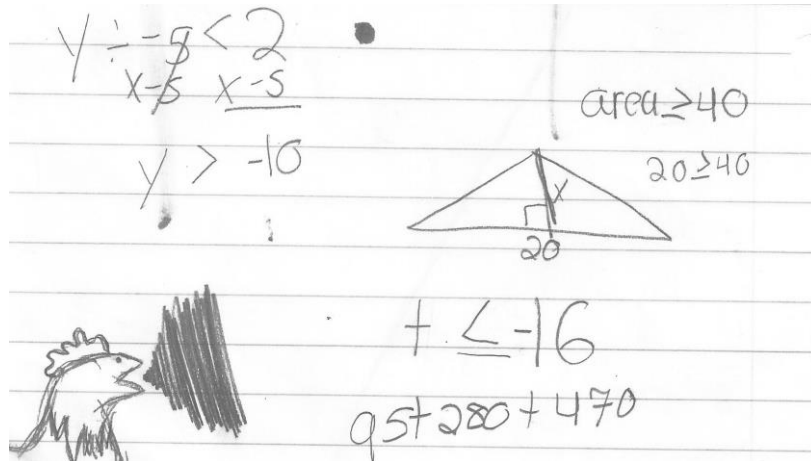 y ÷ -5 < 2
x-5 x-5
y > -10
area ≥ 40
20 ≥ 40
x
20
t ≤ -16
95+280+470